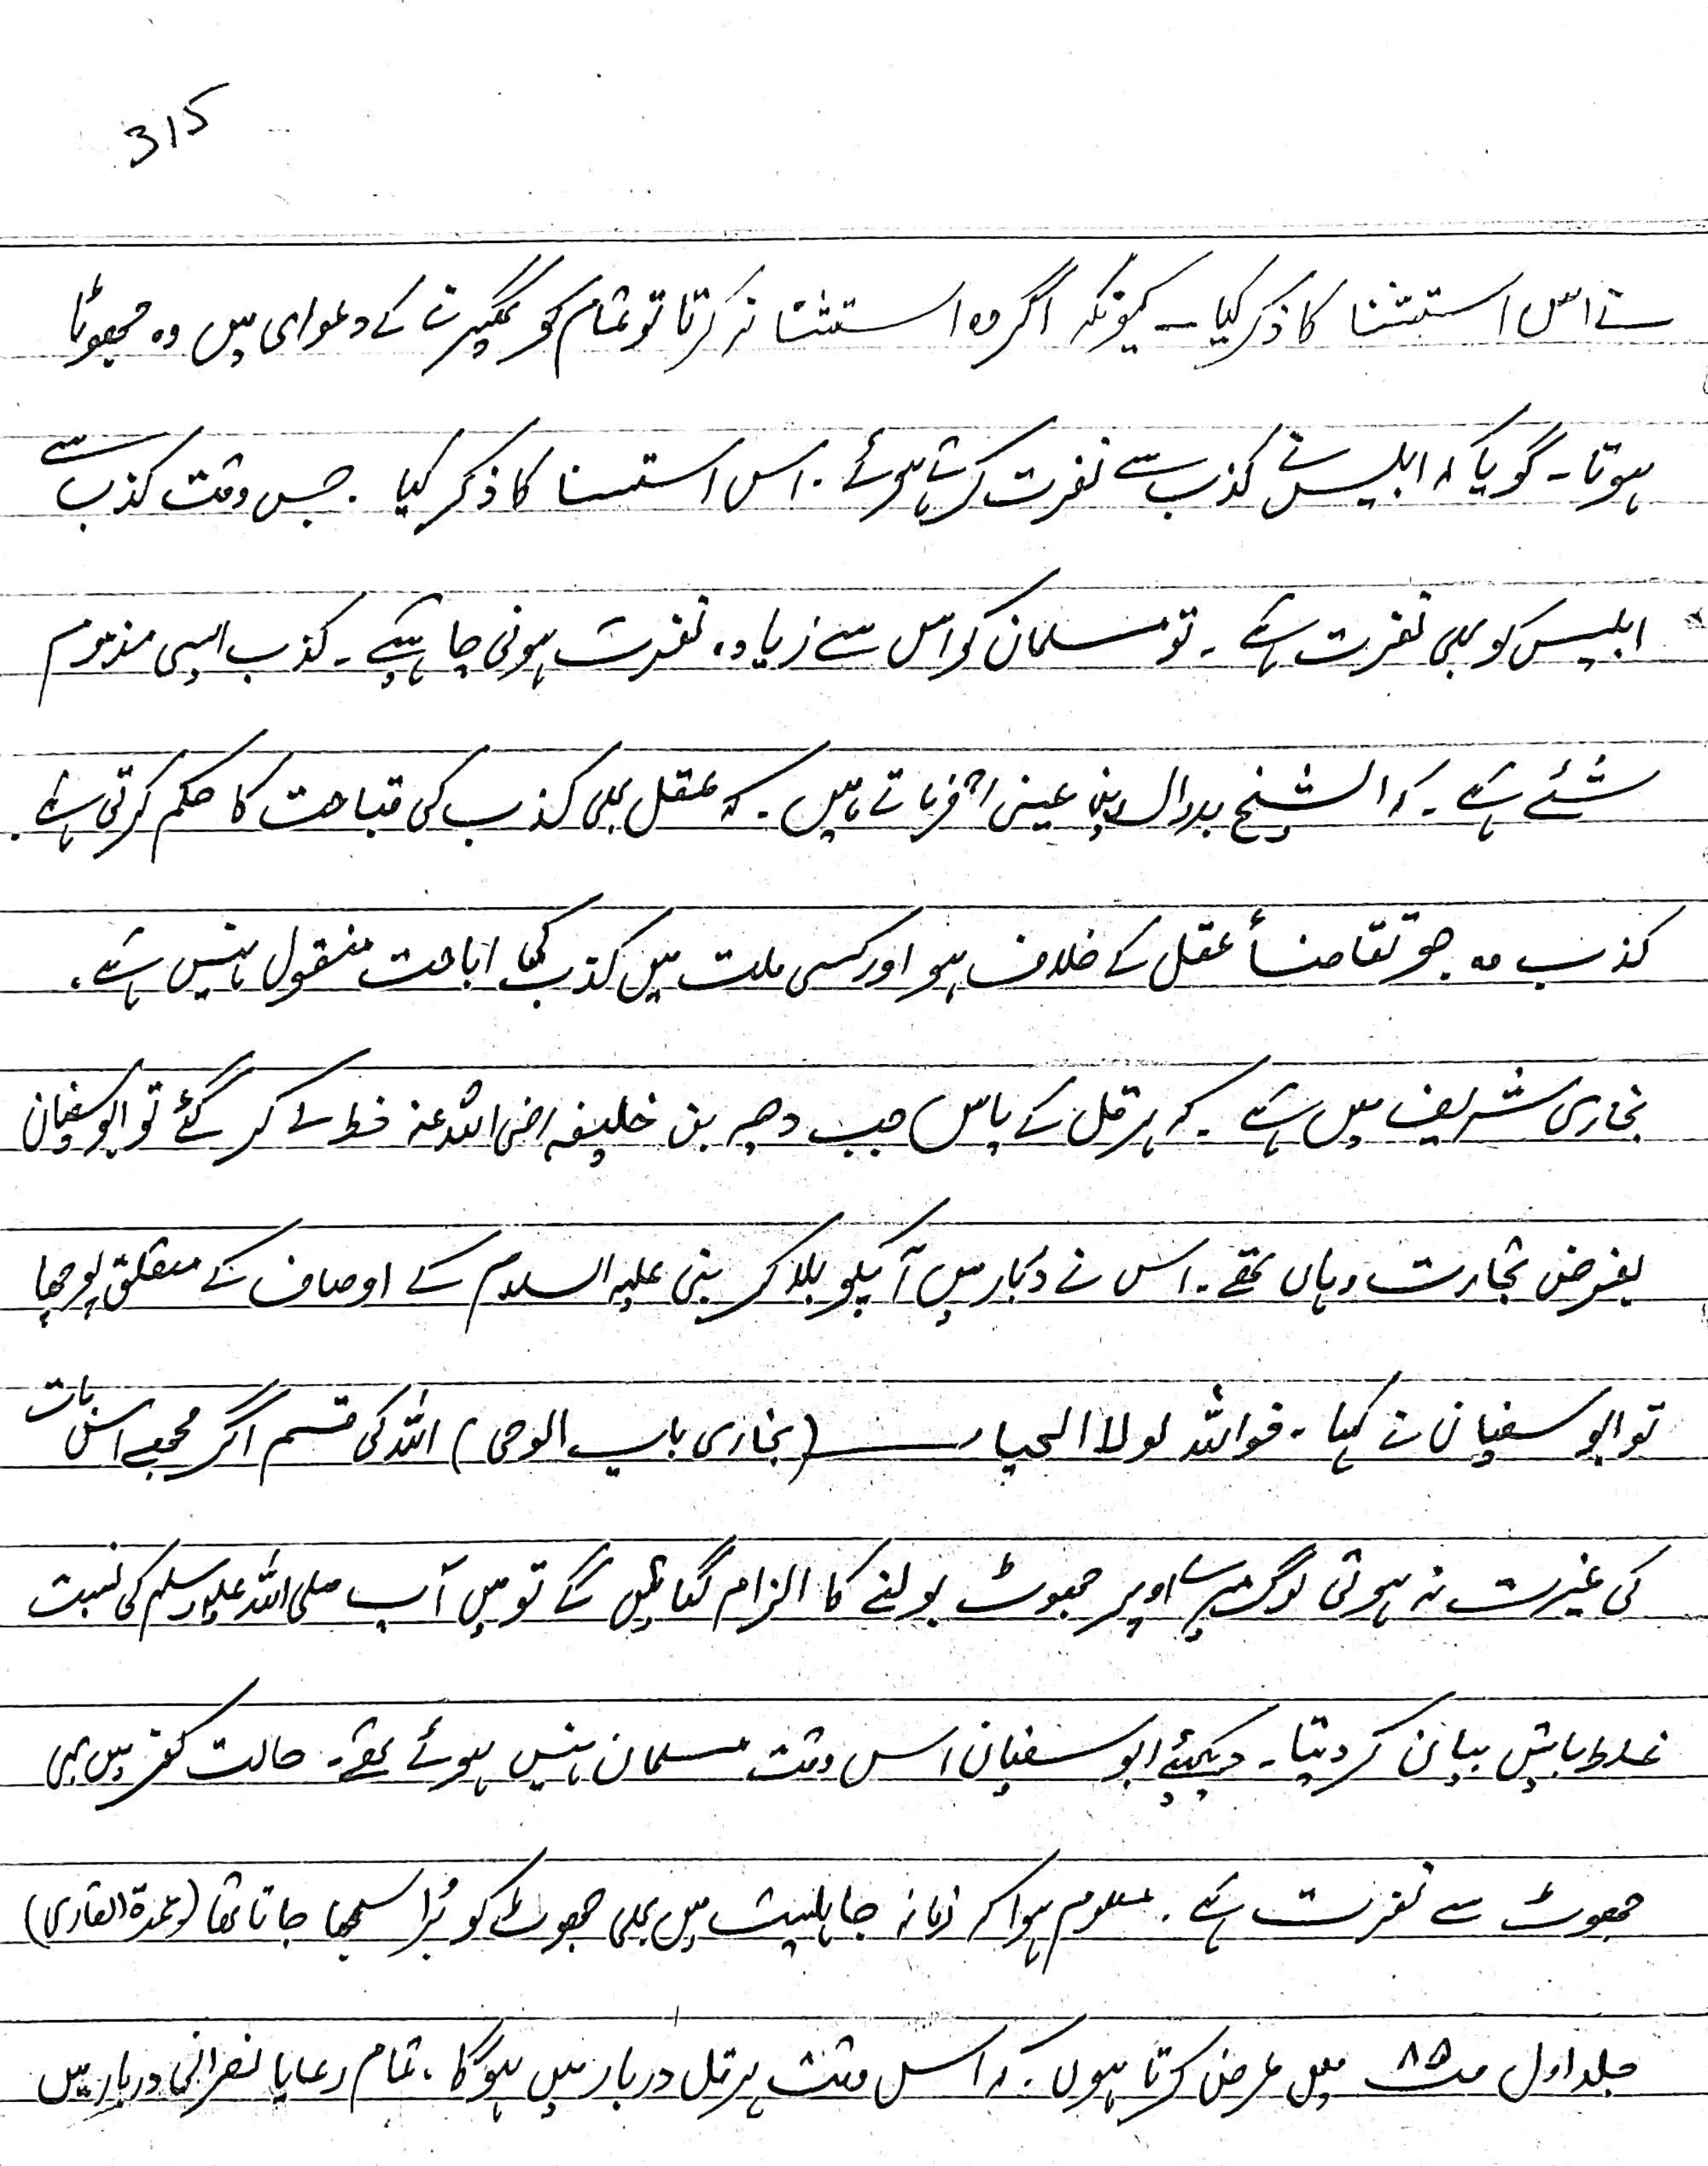 315
نے اس استثنا کا ذکر کیا ۔ کیونکہ اگر وہ استثنا نہ کرتا تو تمام کو گھیرنے کے دعوای میں وہ جھوٹا
ہوتا ۔ گویا کہ ابلیس نے کذب سے نفرت کرتے ہوئے ۔ اس استثنا کا ذکر کیا ۔ جس وقت کذب سے
ابلیس کو بھی نفرت ہے ۔ تو مسلمان کو اس سے زیادہ نفرت ہونی چاہیے ۔ کذب ایسی مذموم
شئے ہے ۔ کہ الشیخ بدرالدین عینی فرماتے ہیں ۔ کہ عقل بھی کذب کی قباحت کا حکم کرتی ہے ۔
کذب وہ جو تقاضأ عقل کے خلاف ہو اور کسی ملت میں کذب کی اباحت منقول ہنیں ہے ۔
بخاری شریف میں ہے ۔ کہ ہرقل کے پاس جب دحیہ بن خلیفہ رضی اللہ عنہ خط لے کر گئے تو ابو سفیان
بغرض تجارت وہاں تھے ۔ اس نے دربار میں آپکو بلا کر نبی علیہ السلام کے اوصاف کے متعلق پوچھا
تو ابو سفیان نے کہا ۔ فواللہ لولا الحیاء (بخاری باب الوحی) اللہ کی قسم اگر مجھے اس بات
کی غیرت نہ ہوتی لوگ میرے اوپر جھوٹ بولنے کا الزام لگائیں گے تو میں آپ صلی اللہ علیہ وسلم کی نسبت
غلط باتیں بیان کر دیتا ۔ دیکھئے ابو سفیان اس وقت مسلمان ہنیں ہوئے تھے ۔ حالت کفر میں بھی
جھوٹ سے نفرت ہے ۔ معلوم ہوا کہ زمانہ جاہلیت میں بھی جھوٹ کو بُرا سمجھا جاتا تھا (عمدۃ القاری)
جلد اول صـ ۸۵ میں عرض کرتا ہوں ۔ کہ اس وقت ہرقل دربار میں ہوگا ، تمام رعایا نصرانی دربار میں